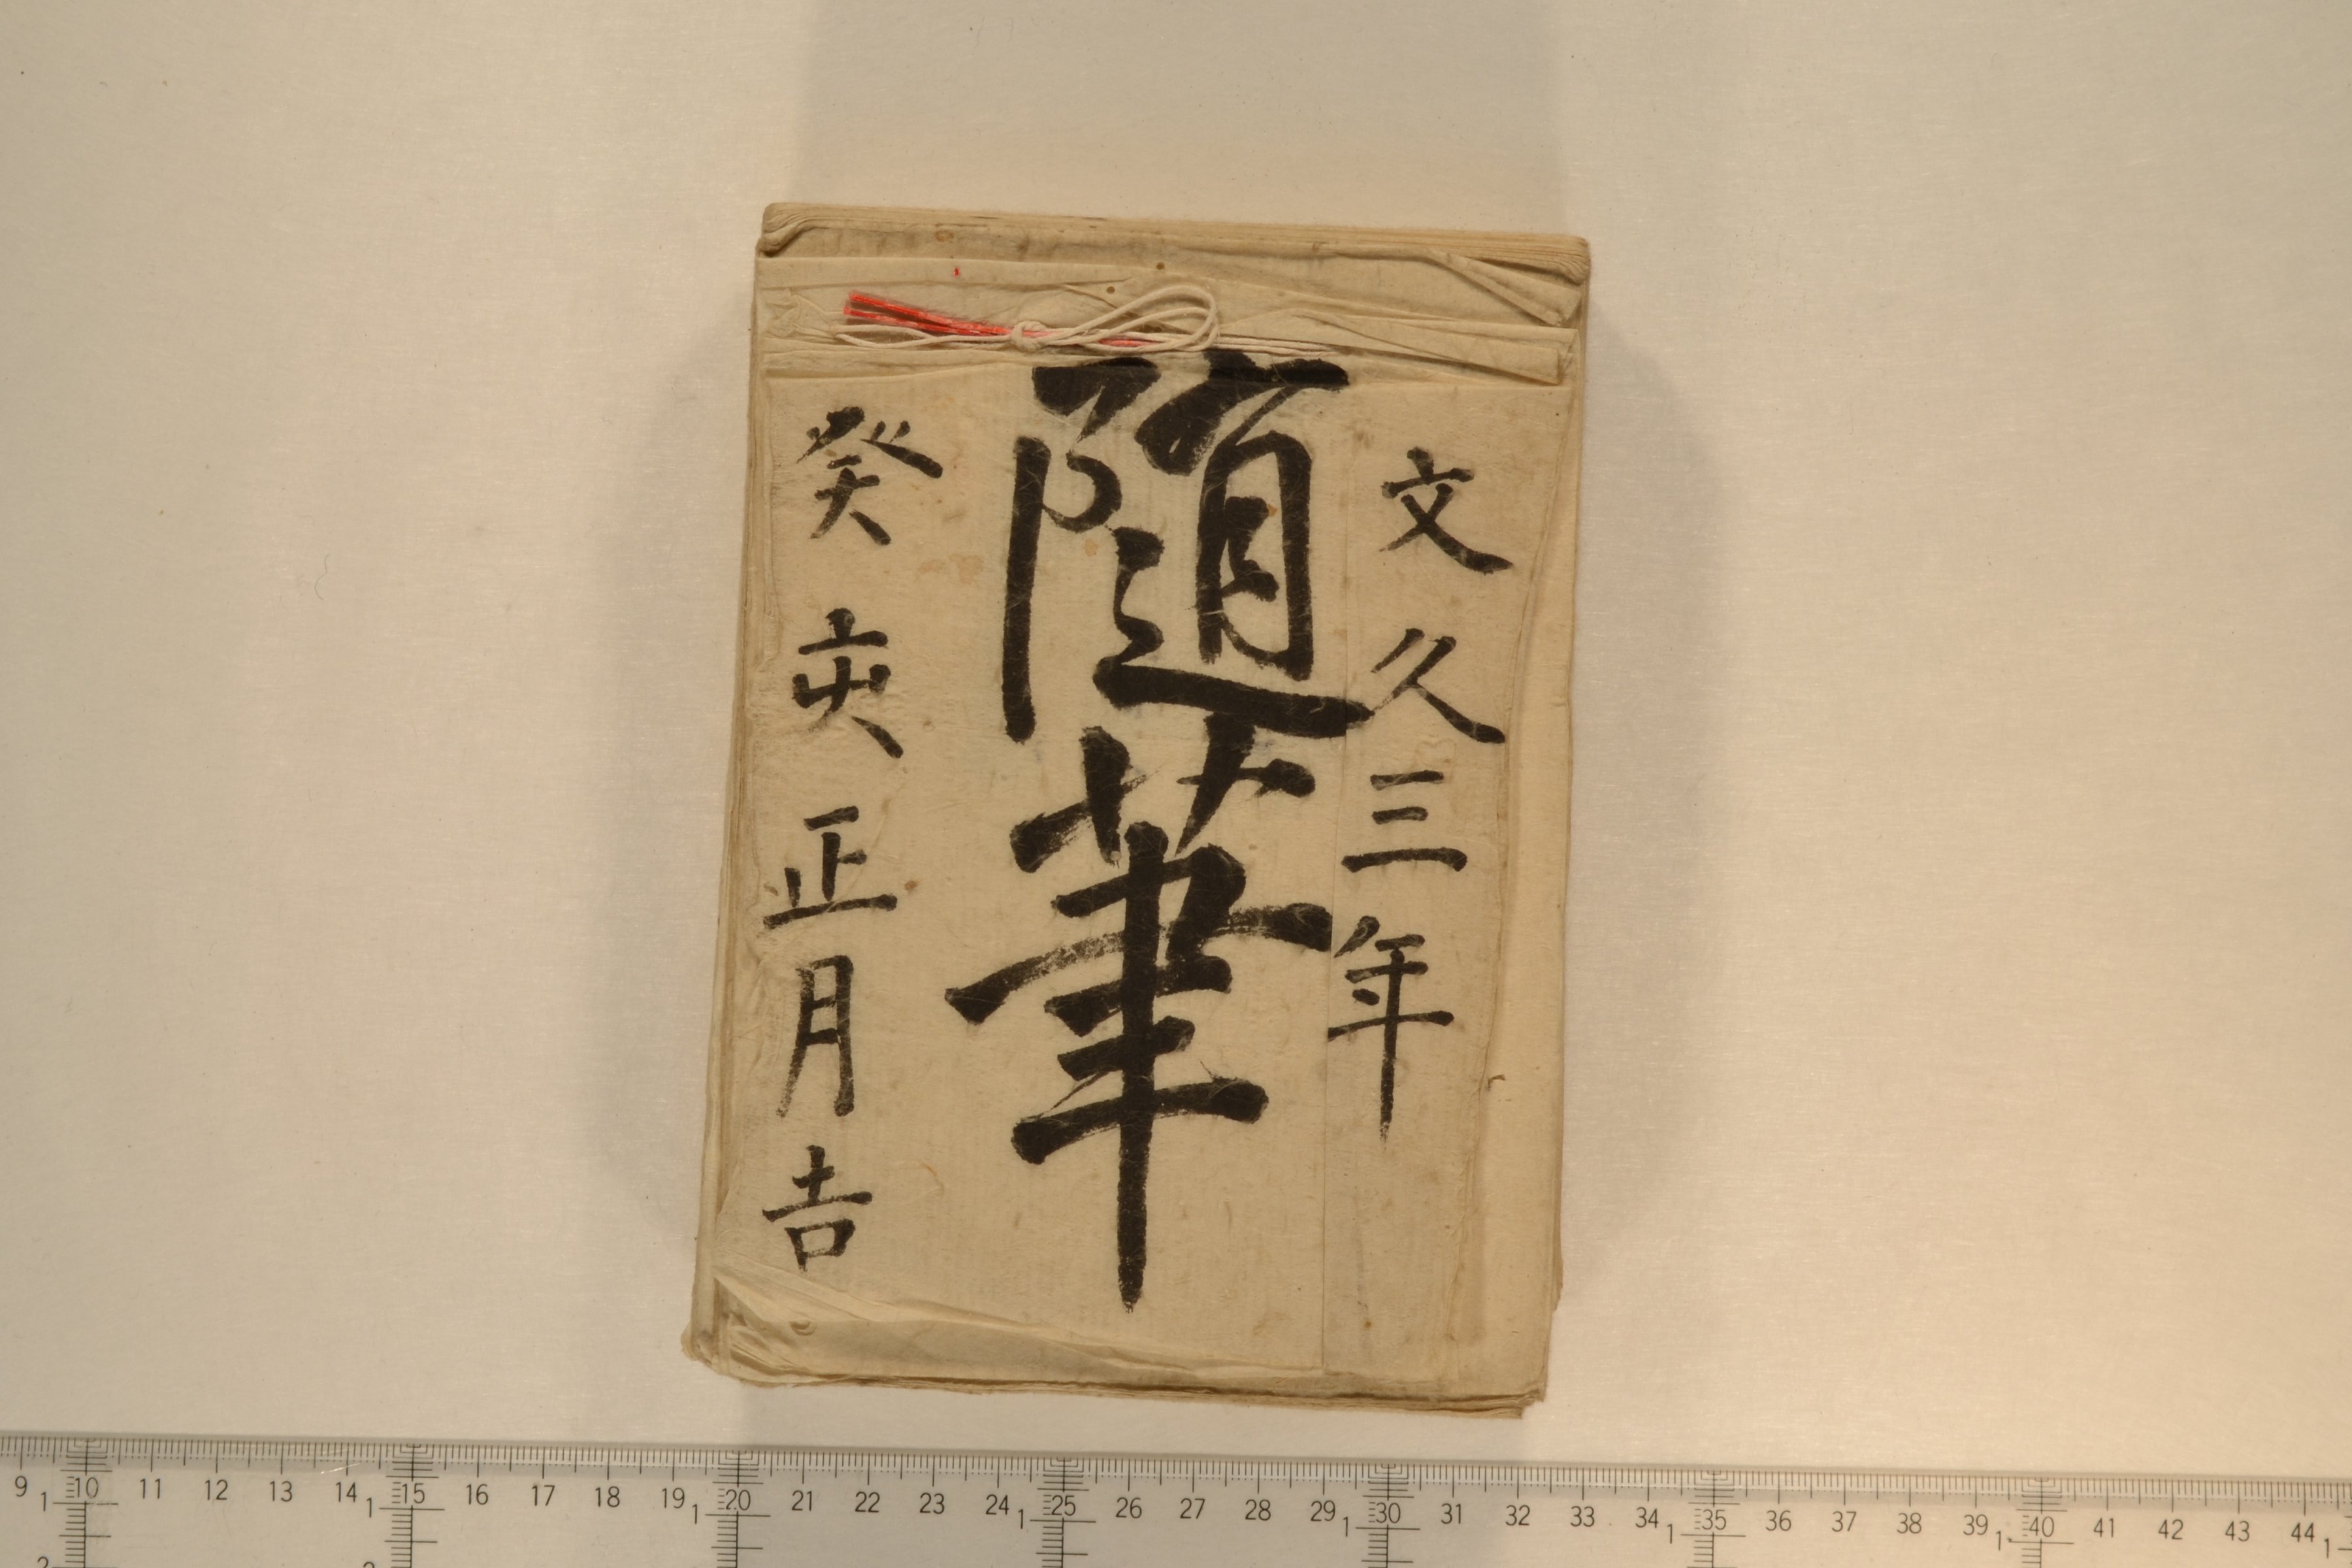 文久三年
随筆
癸亥正月吉
9 10 11 12 13 14 15 16 17 18 19 20 21 22 23 24 25 26 27 28 29 30 31 32 33 34 35 36 37 38 39 40 41 42 43 44
1 1 1 1 1 1 1 1
2 2